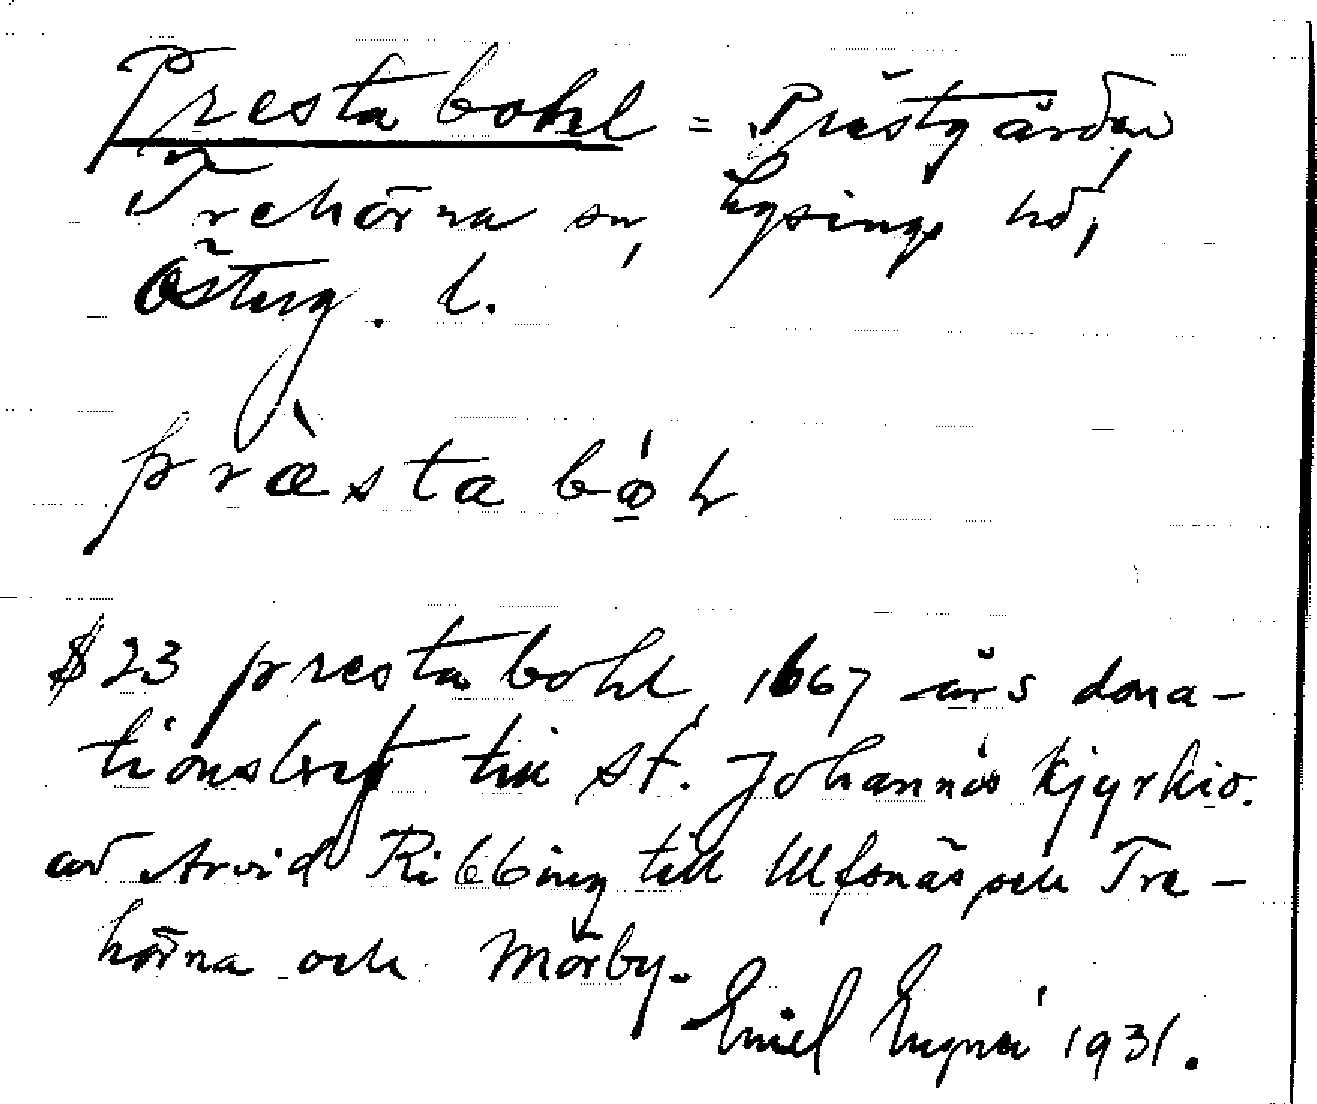 Prestabohl = Prästgården
Trehörna sn, Lysings hd,
Österg. l.
præsta bo̱l
§ 23 prestabohl, 1667 års dona-
tionsbref till St. Johannis Kjyrkio.
av Arvid Ribbing till Ulfsnäs och Tre-
hörna och Mörby.
Emil 1931.